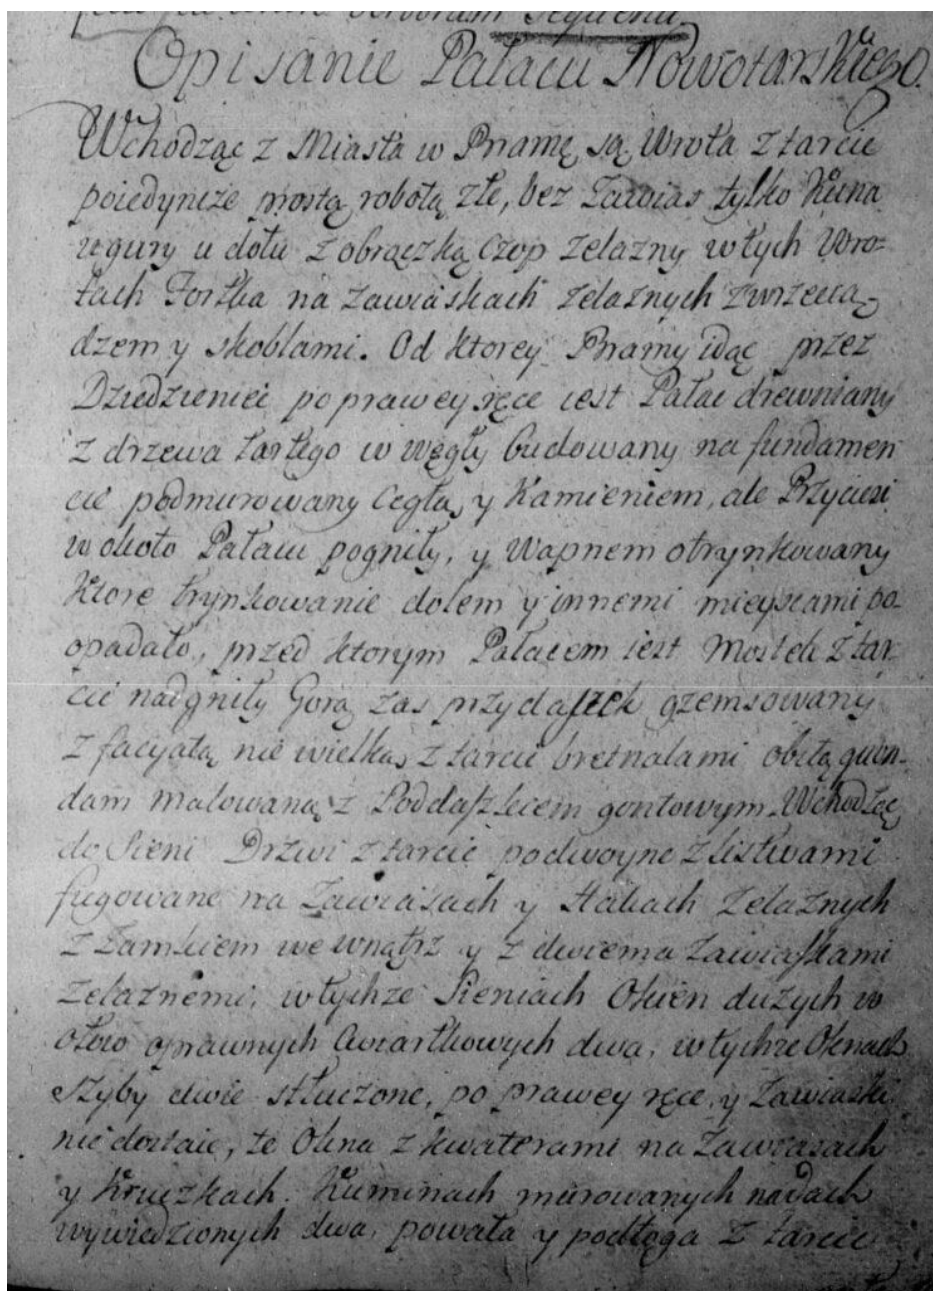 verborum sequentia
Opisanie Pałacu Nowotarskiego.
Wchodząc z Miasta w Bramę są Wrota z tarcic
poiedyncze prostą robotą złe, bez Zawias tylko Kuna
u gury u dołu z obrączką Czop Zelazny w tych Wro=
tach Fortka na zawiaskach zelaznych z wrzecią,
dzem y skoblami. Od ktorey Bramy idąc przez
Dziedzieniec po prawey ręce iest Pałac drewniany
z drzewa tartego w węgły budowany na fundamen
cie podmurowany Cegłą, y Kamieniem, ale Przyciesi
w około Pałacu pogniły, y Wapnem otrynkowany
Ktore trynkowanie dołem y innemi mieyscami po-
opadało, przed ktorym Pałacem iest Mostek z tar
cic nadgniły Gorą zas przydaszek gzemsowany
z facyatą nie wielką z tarcic bretnalami obitą quon-
dam malowaną z Poddaszkiem gontowym. Wchodząc
do Sieni Drzwi z tarcic podwoyne z listwami
fugowane na Zawiasach y Hakach Zelaznych
z Zamkiem we wnątrz y z dwiema zawiaskami
Zelaznemi, w tychze Sieniach Okien duzych w
ołow oprawnych Cwiartkowych dwa, w tychze Oknach
szyby dwie stłuczone, po prawey ręce, y Zawiaski
nie dostaie, te Okna z kwaterami na Zawiasach
y Kruczkach. Kuminach murowanych nadach
wywiedzionych dwa, powała y podłoga z tarcic